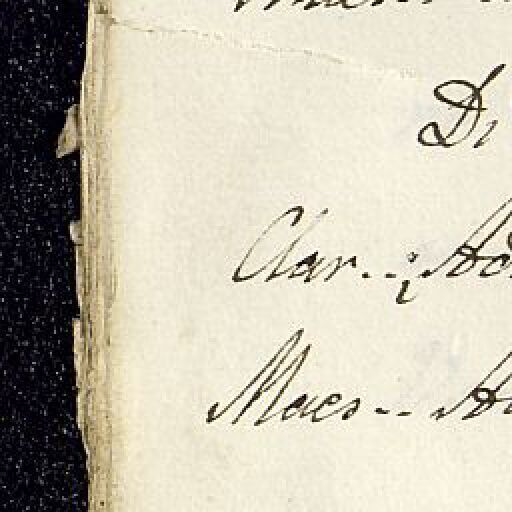 Di
Clar..¿Ad
Maes.. A